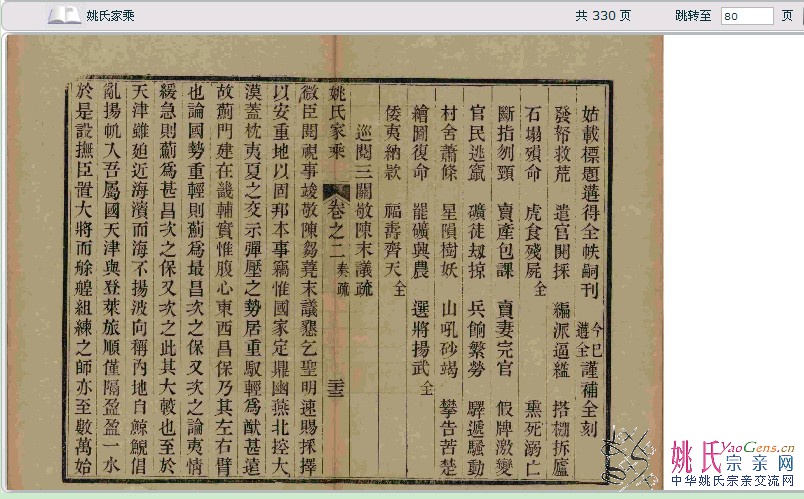 姚氏家乘 共 330 页 跳转至 80 页
姑載標題遘得全帙嗣刊 今巳遘全 謹補全刻
發帑救荒 遣官開採 編派逼縊 搭棚拆廬
石塌殞命 虎食殘屍全 熏死溺亡
斷指刎頸 賣產包課 賣妻完官 假牌激變
官民逃竄 礦徒刼掠 兵餉繁勞 驛遞騷動
村舍蕭條 星隕樹妖 山吼砂竭 攀告苦楚
繪圖復命 罷礦興農 選將揚武全
倭夷納款 福壽齊天全
巡閱三關敬陳末議疏
姚氏家乘 卷之二 奏疏
微臣閱視事竣敬陳芻蕘末議懇乞聖明速賜採擇
以安重地以固邦本事竊惟國家定鼎幽燕北控大
漠蓋枕夷夏之交示彈壓之勢居重馭輕為猷甚遠
故薊門建在畿輔實惟腹心東西昌保乃其左右臂
也論國勢重輕則薊為最昌次之保又次之論夷情
緩急則薊為甚昌次之保又次之此其大較也至於
天津雖廹近海濱而海不揚波向稱內地自鯨鯢倡
亂揚帆入吾屬國天津與登萊旅順僅隔盈盈一水
於是設撫臣置大將而艅艎組練之師亦至數萬始
姚氏宗亲网
YaoGens.cn
中华姚氏宗亲交流网